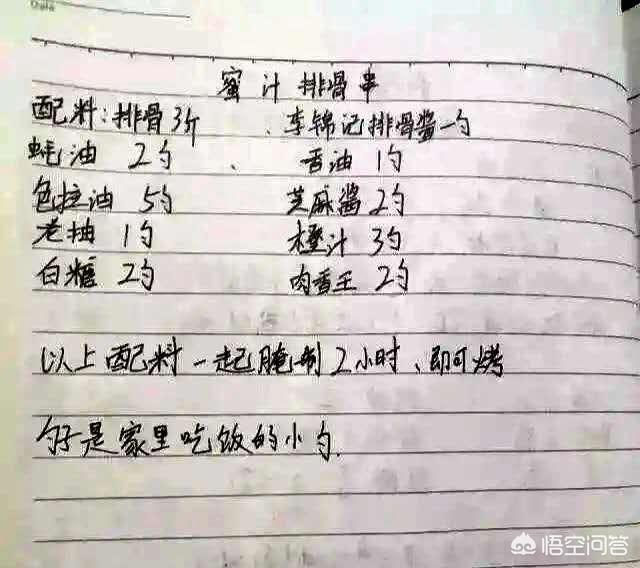 Date
蜜汁排骨串
配料:排骨3斤 、李锦记排骨酱一勺
蚝油 2勺 、 香油 1勺
色拉油 5勺 芝麻酱 2勺
老抽 1勺 橙汁 3勺
白糖 2勺 肉香王 2勺
以上配料一起腌制2小时、即可烤
勺子是家里吃饭的小勺.
悟空问答